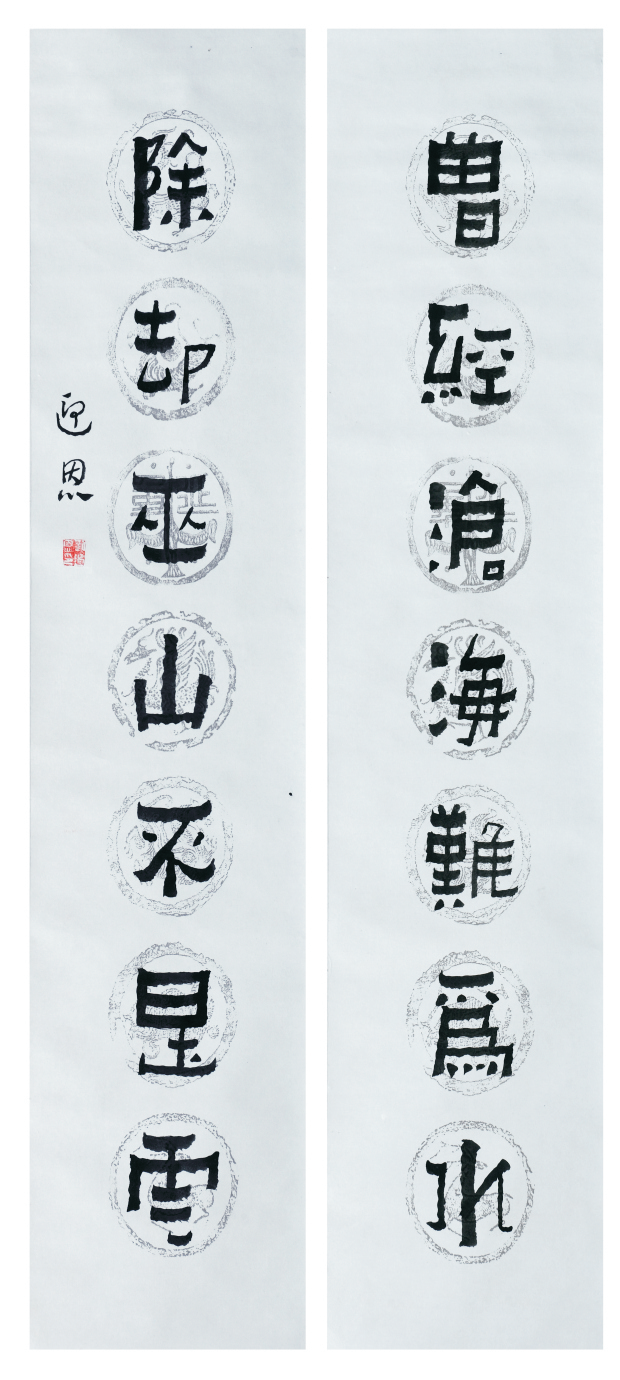 曾經滄海難爲水
除却巫山不是雲
迎恩